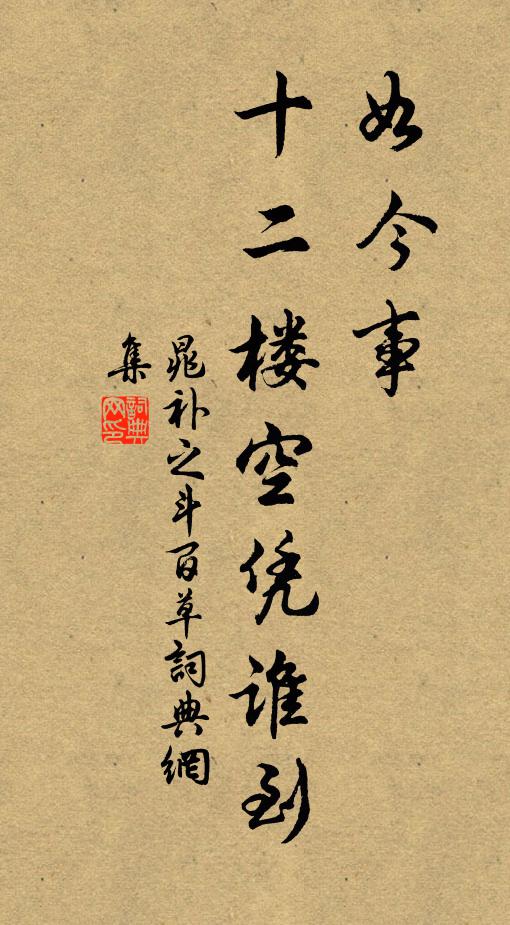 如今事
十二楼空凭谁到
晁补之斗百草詞典網
集
詞典网印